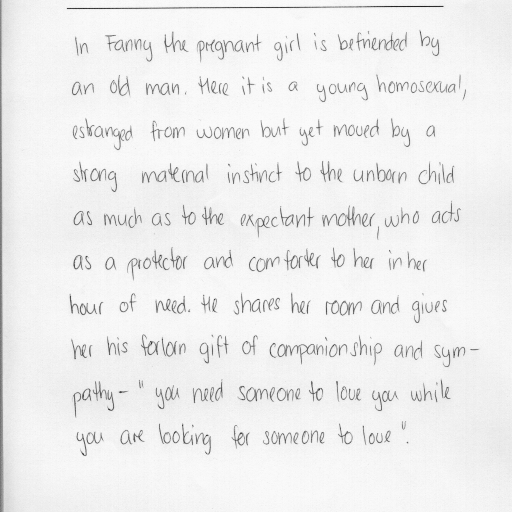 In Fanny the pregnant girl is befriended by
an old man. Here it is a young homosexual,
estranged from women but yet moved by a
strong maternal instinct to the unborn child
as much as to the expectant mother, who acts
as a protector and comforter to her in her
hour of need. He shares her room and gives
her his forlorn gift of companionship and sym-
pathy - " you need someone to love you while
you are looking for someone to love ".